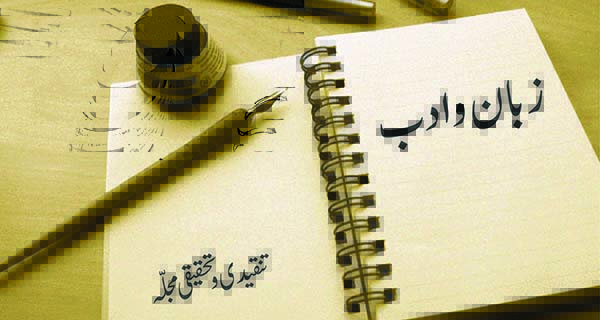 زبان و ادب
تنقیدی و تحقیقی مجلّہ